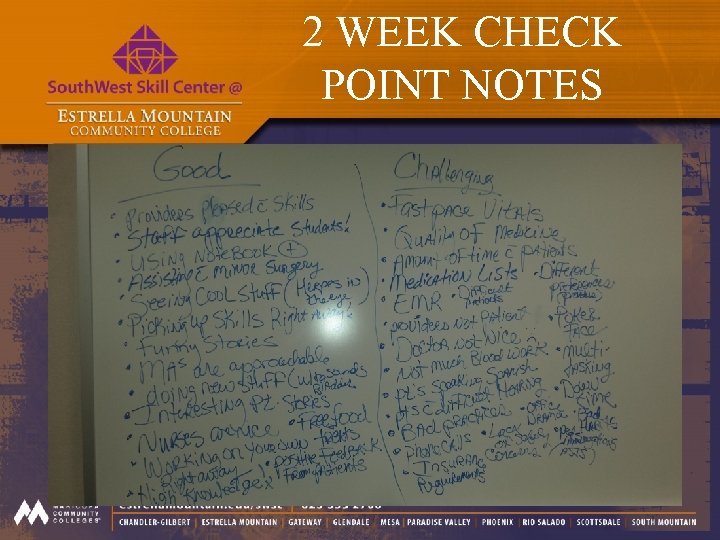 2 WEEK CHECK
POINT NOTES
SouthWest Skill Center @
ESTRELLA MOUNTAIN
COMMUNITY COLLEGE
Good
• Providers Pleased c̄ Skills
• Staff appreciate Students!
• Using Notebook +
• Assisting c̄ minor Surgery
• Seeing Cool Stuff (Herpes in
• Picking up Skills Right Away!
• Funny Stories
• MAs are approachable
• doing new stuff (Ultrasounds
• Interesting Pt Stories
• Free food
• Nurses are nice
• Working on your own
Right away
• Positive Feedback
From patients
• High Knowledge
Challenging
• Fast pace Vitals
• Quality of Medicine
• Amount of time c̄ patients
• Medication Lists
• Different
preferences
• EMR
• Difficult
patients
• providers not patient
• Poker
Face
• Doctor not Nice
• Not much Blood work
• multi-
tasking
• pt's Speaking Spanish
• Pts Difficult Hearing
• Down
time
• Bad practices
• Office
Drama
• Bad
• Phone Calls
• Lack
of Safety
Concerns
• Insurance
Requirements
MARICOPA
COMMUNITY
COLLEGES
estrellamountain.edu/swsc
CHANDLER-GILBERT | ESTRELLA MOUNTAIN | GATEWAY | GLENDALE | MESA | PARADISE VALLEY | PHOENIX | RIO SALADO | SCOTTSDALE | SOUTH MOUNTAIN